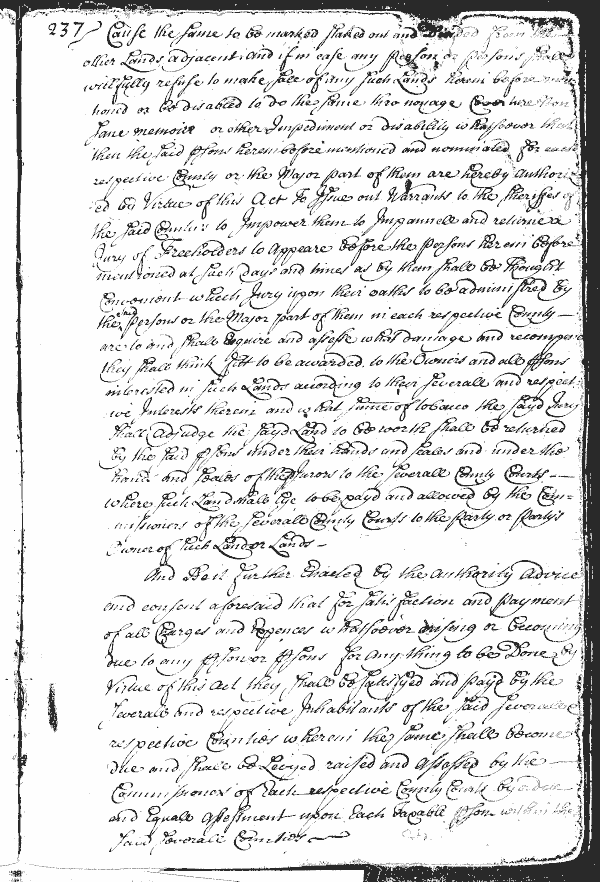 237 Cause the same to be marked staked out and Divided from the
other Lands adjacent And if in case any person or persons shall
willfully refuse to make sale of any such Lands herein before men
tioned or be disabled to do the same thro nonage Coverture Non
Sane memorie or other Impediment or disability whatsoever that
then the said psons herein before mentioned and nominated for each
respective County or the Major part of them are hereby authoriz
ed by Virtue of this Act To Issue out Warrants to the Sheriffes of
the said Counties to Impower them to Impannell and returne a
Jury of Freeholders to Appeare before the persons herein before
mentioned at such Days and times as by them shall be Thought
Convenient which Jury upon their oaths to be administred by
the said persons or the Major part of them in each respective County
are to and shall Enquire and assesse what damage and recompence
they shall think fitt to be awarded to the Owners and all psons
interested in such Lands according to their severall and respect
ive Interests therein and what summe of tobacco the sayd Jury
shall Adjudge the sayd Land to be worth shall be returned
by the said psons under their hands and seales and under the
hands and seales of the Jurors to the severall County Courts
where such Land shall lye to be payd and allowed by the Com=
missioners of the severall County Courts to the Party or Partys
Owner of such Land or Lands
And Be it further Enacted by the authority Advice
and consent aforesaid that for satisfaction and payment
of all Charges and Expences whatsoever arising or becoming
due to any pson or psons for Any thing to be Done by
Virtue of this Act they shall be satisfyed and payd by the
severall and respective Inhabitants of the said severall &
respective Counties wherein the same shall become
due and shall be Levyed raised and assessed by the
Commissioners of each respective County Courts by a due
and Equall assessment upon Each taxable pson within the
said severall Counties